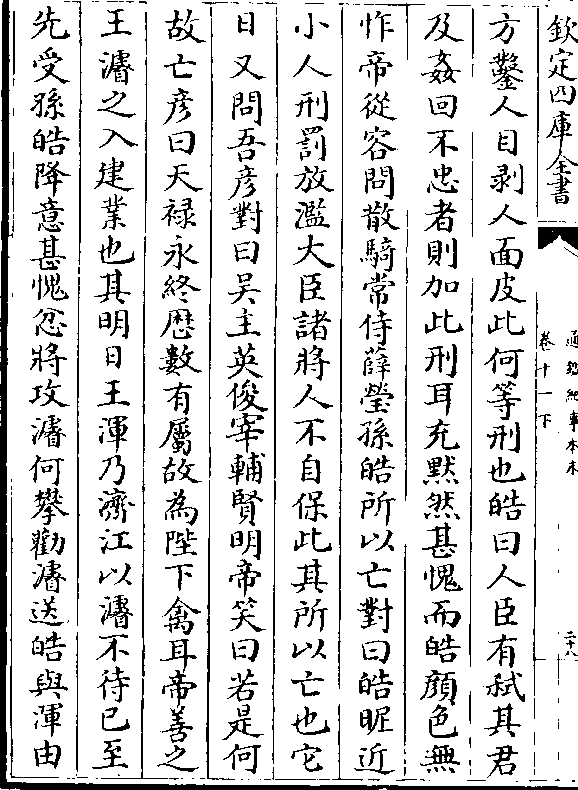 欽定四庫全書
通鑑紀事本末
卷十一下
二十八
方鑿人目剥人面皮此何等刑也皓曰人臣有弑其君
及姦回不忠者則加此刑耳充黙然甚愧而皓顔色無
怍帝從容問散騎常侍薛瑩孫皓所以亡對曰皓昵近
小人刑罰放濫大臣諸將人不自保此其所以亡也它
日又問吾彦對曰吴主英俊宰輔賢明帝笑曰若是何
故亡彦曰天禄永終厯數有屬故為陛下禽耳帝善之
王濬之入建業也其明日王渾乃濟江以濬不待已至
先受孫皓降意甚愧忿將攻濬何攀勸濬送皓與渾由